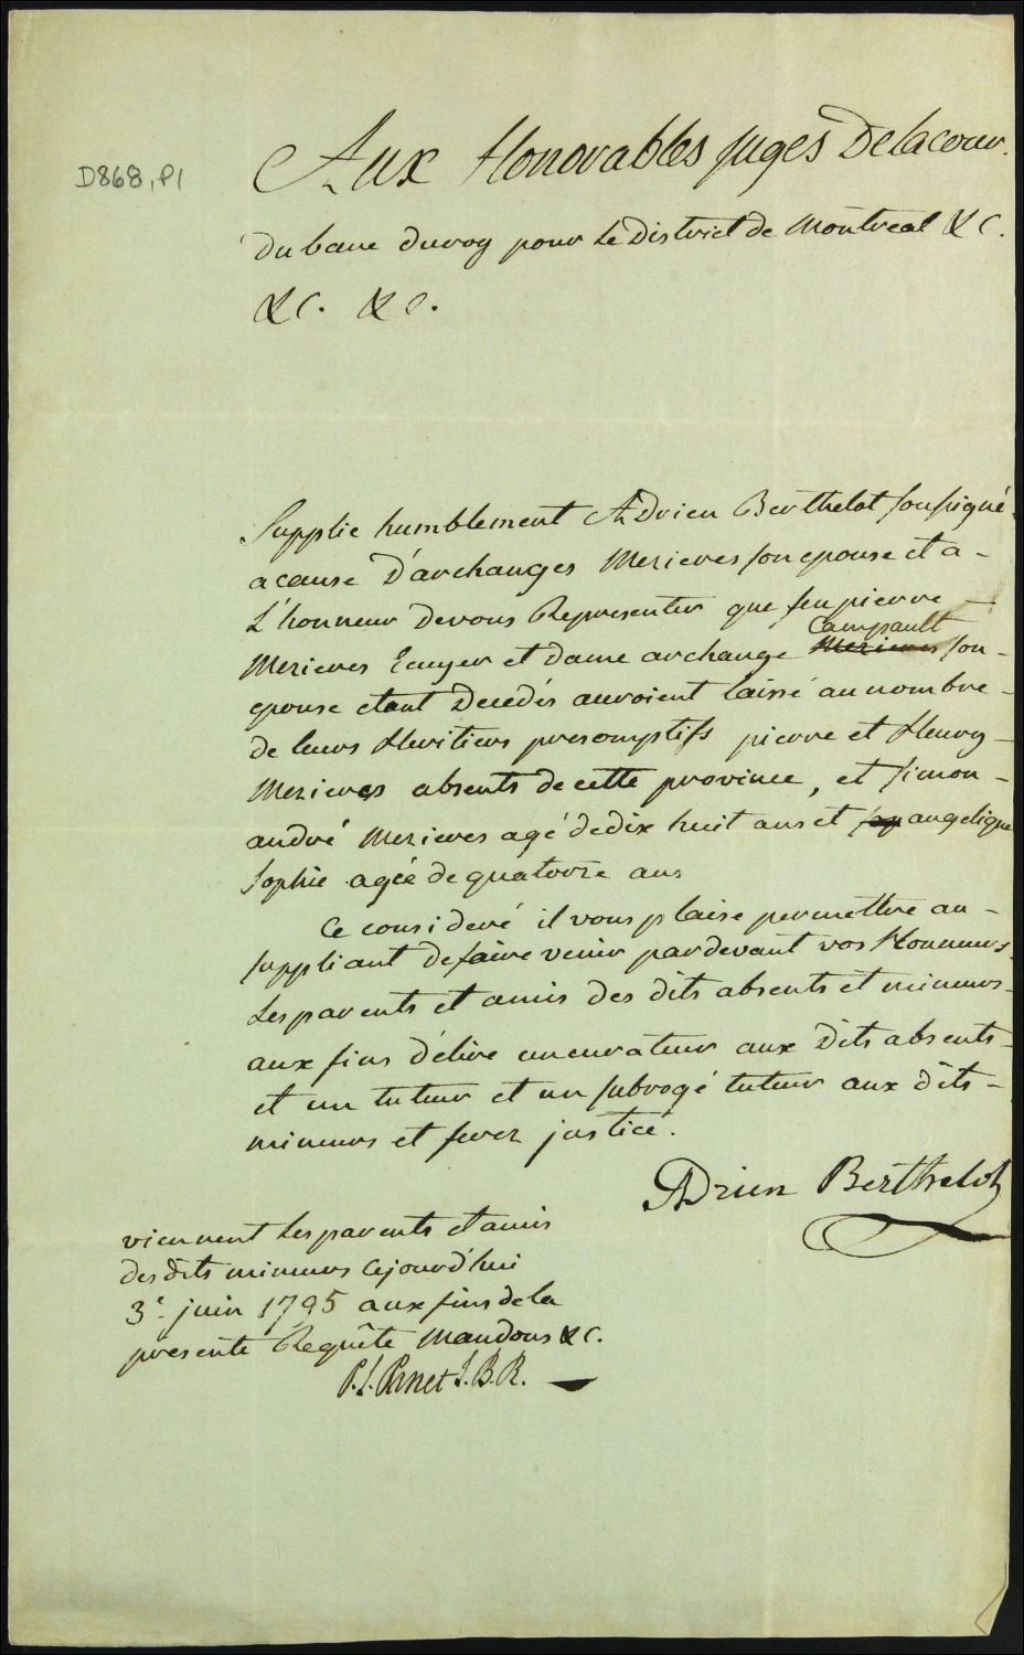 D868, P1
Aux Honorables juges De la cour
du banc du roy pour Le District de Montreal &c.
&c. &c.
Supplie humblement Adrien Berthelot soussigné
a cause D'archanges Mezieres son epouse et a -
L'honneur de vous Representer que feu pierre -
Campault
Mezieres Ecuyer et dame archange Mezieres son -
epouse etant Decedés auroient laissé au nombre -
de leurs Heritiers presomptifs pierre et Henry -
Mezieres absents de cette province, et simon -
andré Mezieres agé de dix huit ans et angelique
Sophie agée de quatorze ans
Ce consideré il vous plaise permettre au -
suppliant de faire venir pardevant vos Honneurs
Les parents et amis des dits absents et mineurs -
aux fins d'elire un curateur aux Dits absents -
et un tuteur et un subrogé tuteur aux dits -
mineurs et ferez justice.
Adrien Berthelot
viennent Les parents et amis
des dits mineurs cejourd'hui
3e. juin 1795 aux fins de la
presente Requête Mandons &c.
P. L. Panet J. B. R. -